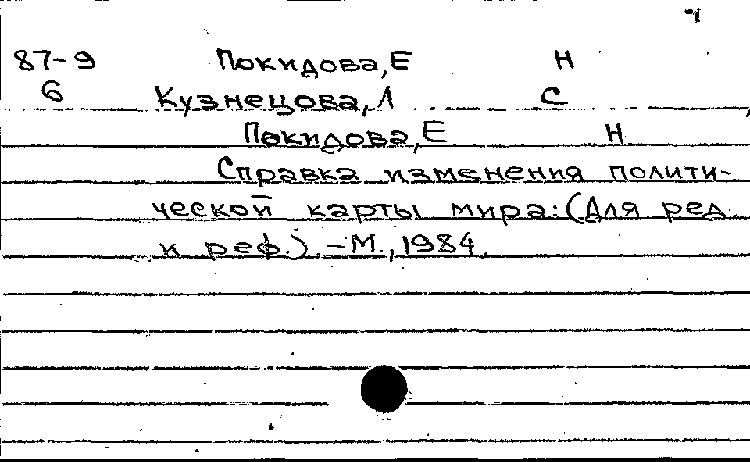 87-9 Покидова, Е Н
6 Кузнецова, Л С
Покидова, Е Н
Справка изменения полити-
ческой карты мира: (Для ред.
и реф.). - М., 1984.